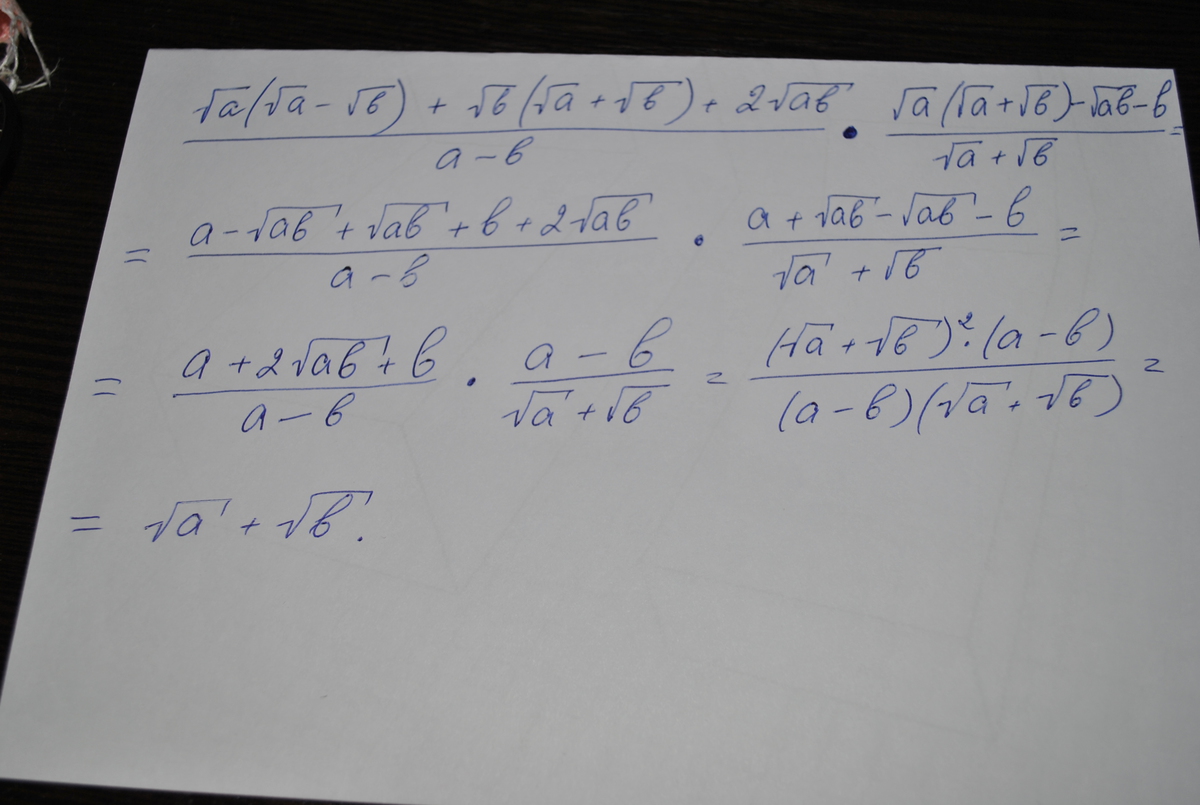 (√a(√a - √b) + √b(√a + √b) + 2√ab)/(a - b) • (√a(√a + √b) - √ab - b)/(√a + √b) =
= (a - √ab + √ab + b + 2√ab)/(a - b) · (a + √ab - √ab - b)/(√a + √b) =
= (a + 2√ab + b)/(a - b) · (a - b)/(√a + √b) = ((√a + √b)²·(a - b))/((a - b)(√a + √b)) =
= √a + √b.